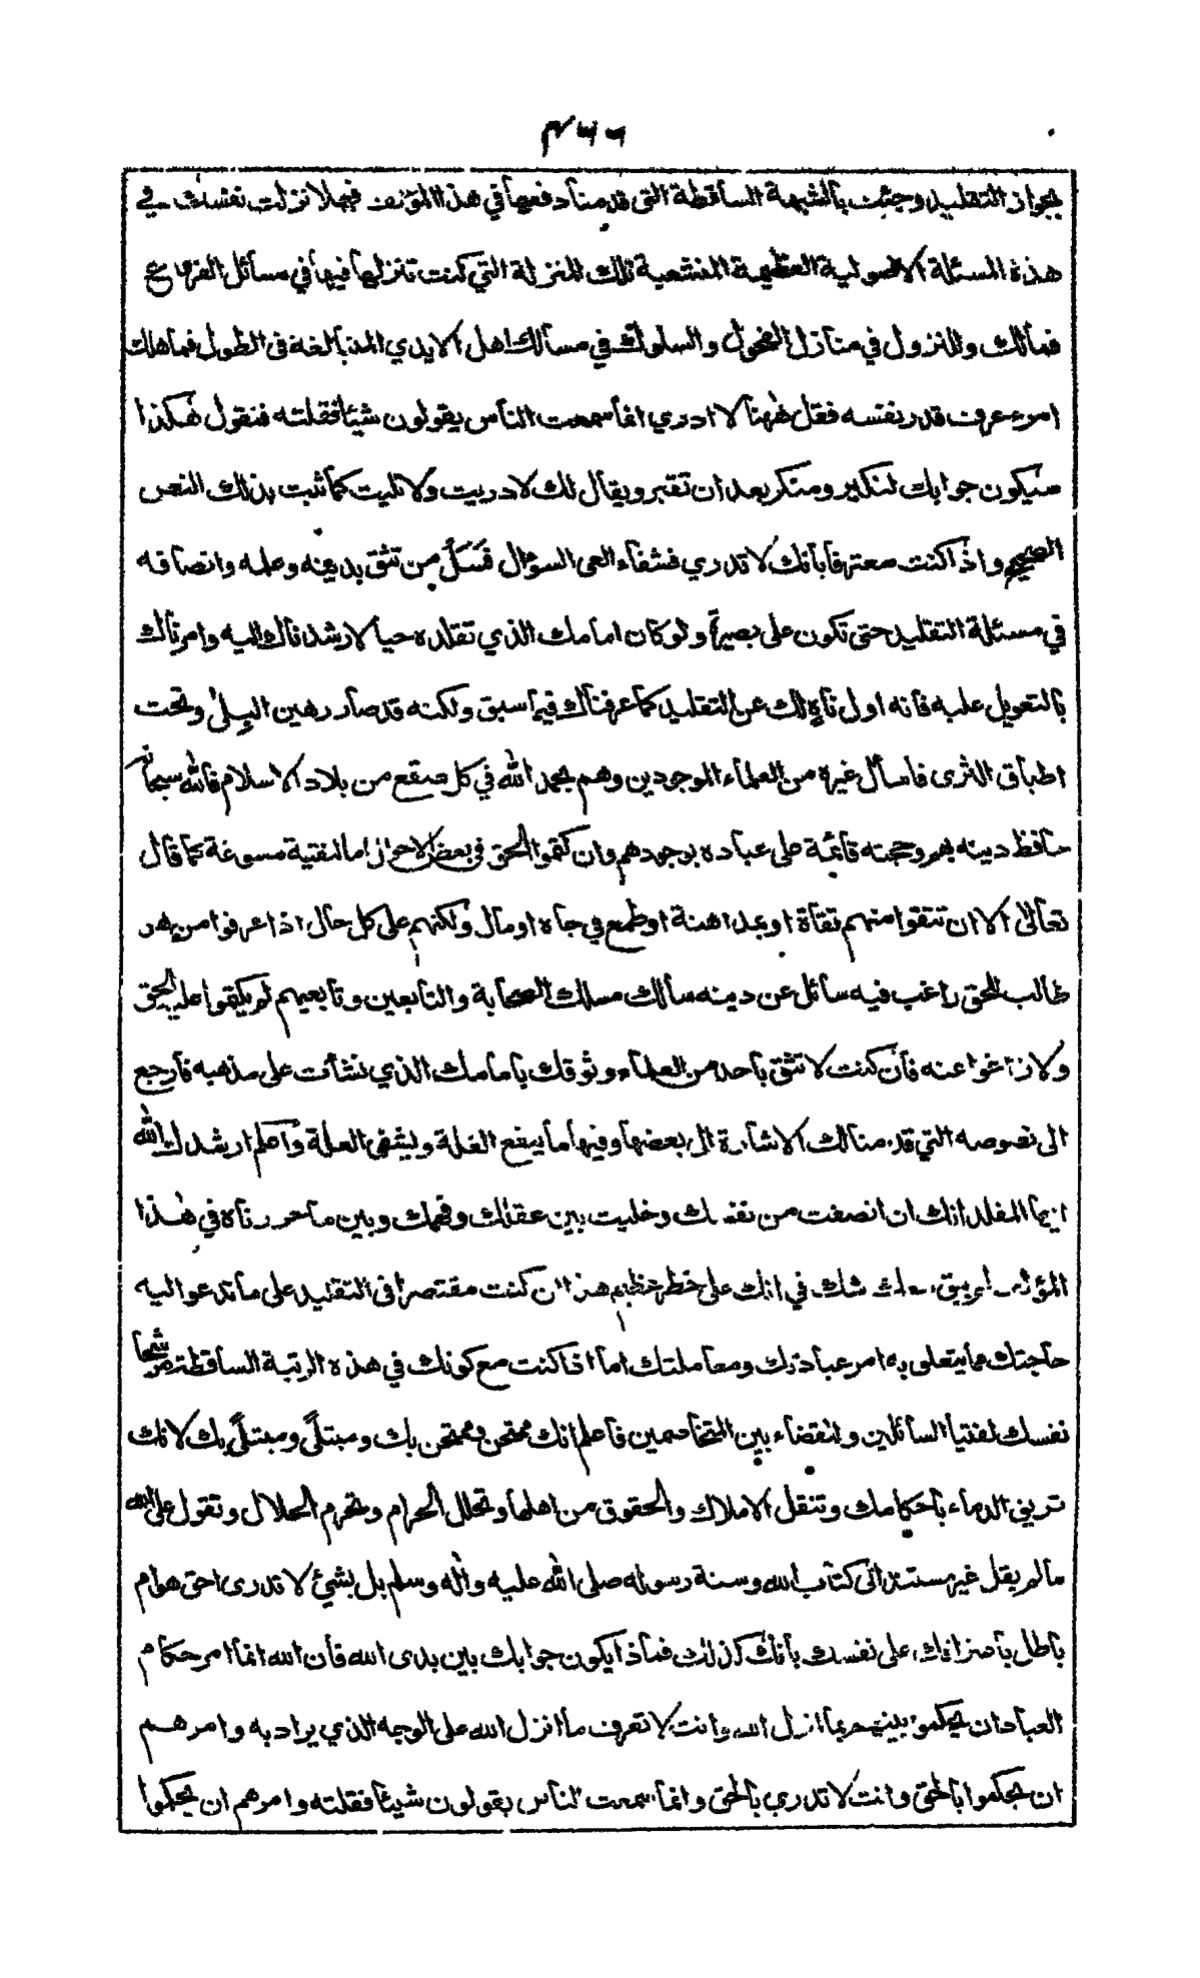 ٤٦٦
بجواز التقليد وجئت بالشبهة الساقطة التى قدمنا دفعها في هذا المؤلف فهلا نزلت نفسك في
هذه المسئلة الاصولية العظيمة المتشعبة تلك المنزلة التي كنت تنزلها فيها في مسائل الفروع
فمالك والنزول في منازل الفحول والسلوك في مسالك اهل الايدي المتبالغة فى الطول فما هلك
امرء عرف قدر نفسه فقل ههنا لا ادري انما سمعت الناس يقولون شيئا فقلته فنقول هكذا
سيكون جوابك لنكير ومنكر بعد ان تقبر ويقال لك لا دريت ولا تليت كما ثبت بذلك النص
الصحيح واذا كنت معترفا بانك لا تدري فشفاء العى السؤال فسل من تثق بدينه وعلمه وانصافه
في مسئلة التقليد حتى تكون على بصيرة ولو كان امامك الذي تقلده حيا لارشدناك اليه وامرناك
بالتعويل عليه فانه اول ناه لك عن التقليد كما عرفناك فيما سبق ولكنه قد صار رهين البلى وتحت
اطباق الثرى فاسأل غيره من العلماء الموجودين وهم بحمد الله في كل صقع من بلاد الاسلام فالله سبحانه
حافظ دينه بهم وحجته قائمة على عباده بوجودهم وان كتموا الحق في بعض الاحوال اما لتقية مسوغة كما قال
تعالى الا ان تتقوا منهم تقاة او بمداهنة او طمع في جاه او مال ولكنهم على كل حال اذا عرفوا من هو
طالب للحق راغب فيه سائل عن دينه سالك مسلك الصحابة والتابعين وتابعيهم لم يكتموا عليه الحق
ولا زاغوا عنه فان كنت لا تثق باحد من العلماء وثوقك بامامك الذي نشأت على مذهبه فارجع
الى نصوصه التي قدمنا لك الاشارة الى بعضها وفيها ما ينقع الغلة ويشفى العلة واعلم ارشدك الله
ايها المقلد انك ان انصفت من نفسك وخليت بين عقلك وفهمك وبين ما حررناه في هذا
المؤلف لم يبق معك شك في انك على خطر عظيم هذا ان كنت مقتصرا فى التقليد على ما تدعو اليه
حاجتك مما يتعلق به امر عبادتك ومعاملتك اما اذا كنت مع كونك في هذه الرتبة الساقطة مرشحا
نفسك لفتيا السائلين وللقضاء بين المتخاصمين فاعلم انك ممتحن وممتحن بك ومبتلًى ومبتلًى بك لانك
تريق الدماء باحكامك وتنقل الاملاك والحقوق من اهلها وتحلل الحرام وتحرم الحلال وتقول على الله
مالم يقل غير مستند الى كتاب الله وسنة رسوله صلى الله عليه واله وسلم بل بشئ لا تدرى احق هو ام
باطل باعترافك على نفسك بانك كذلك فماذا يكون جوابك بين يدى الله فان الله انما امر حكام
العباد ان يحكموا بينهم بما انزل الله وانت لا تعرف ما انزل الله على الوجه الذي يراد به وامرهم
ان يحكموا بالحق وانت لا تدري بالحق وانما سمعت الناس يقولون شيئا فقلته وامرهم ان يحكموا